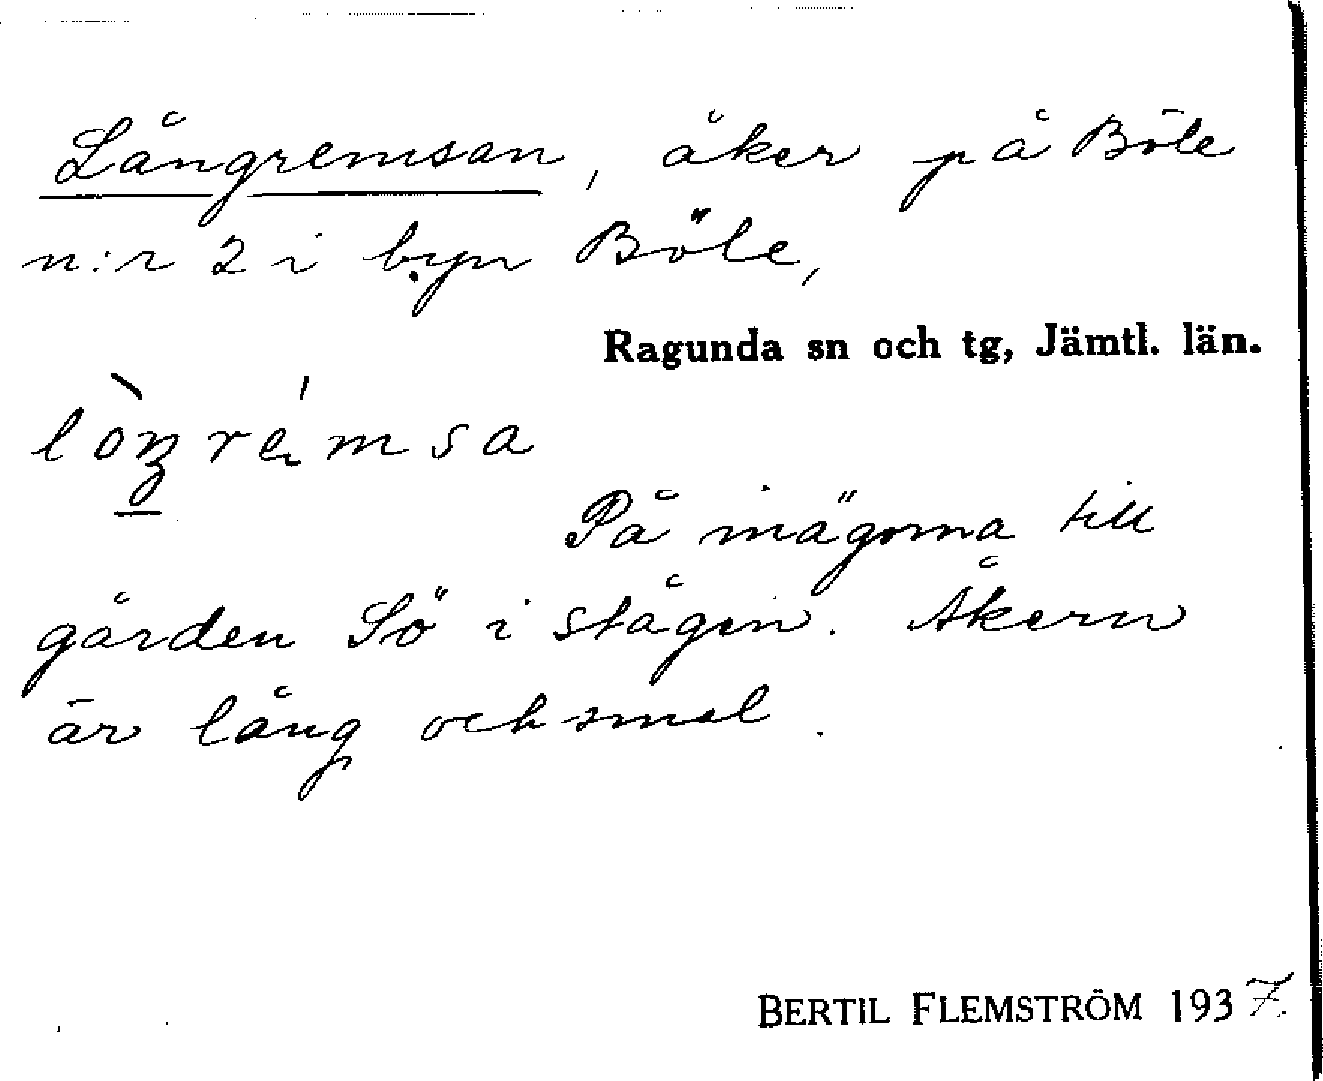 Långremsan, åker på Böle
n:r 2 i byn Böle,
Ragunda sn och tg, Jämtl. län.
lòŋrémsa
På inägorna till
gården Sö i stägen. Åkern
är lång och smal.
BERTIL FLEMSTRÖM 1937.